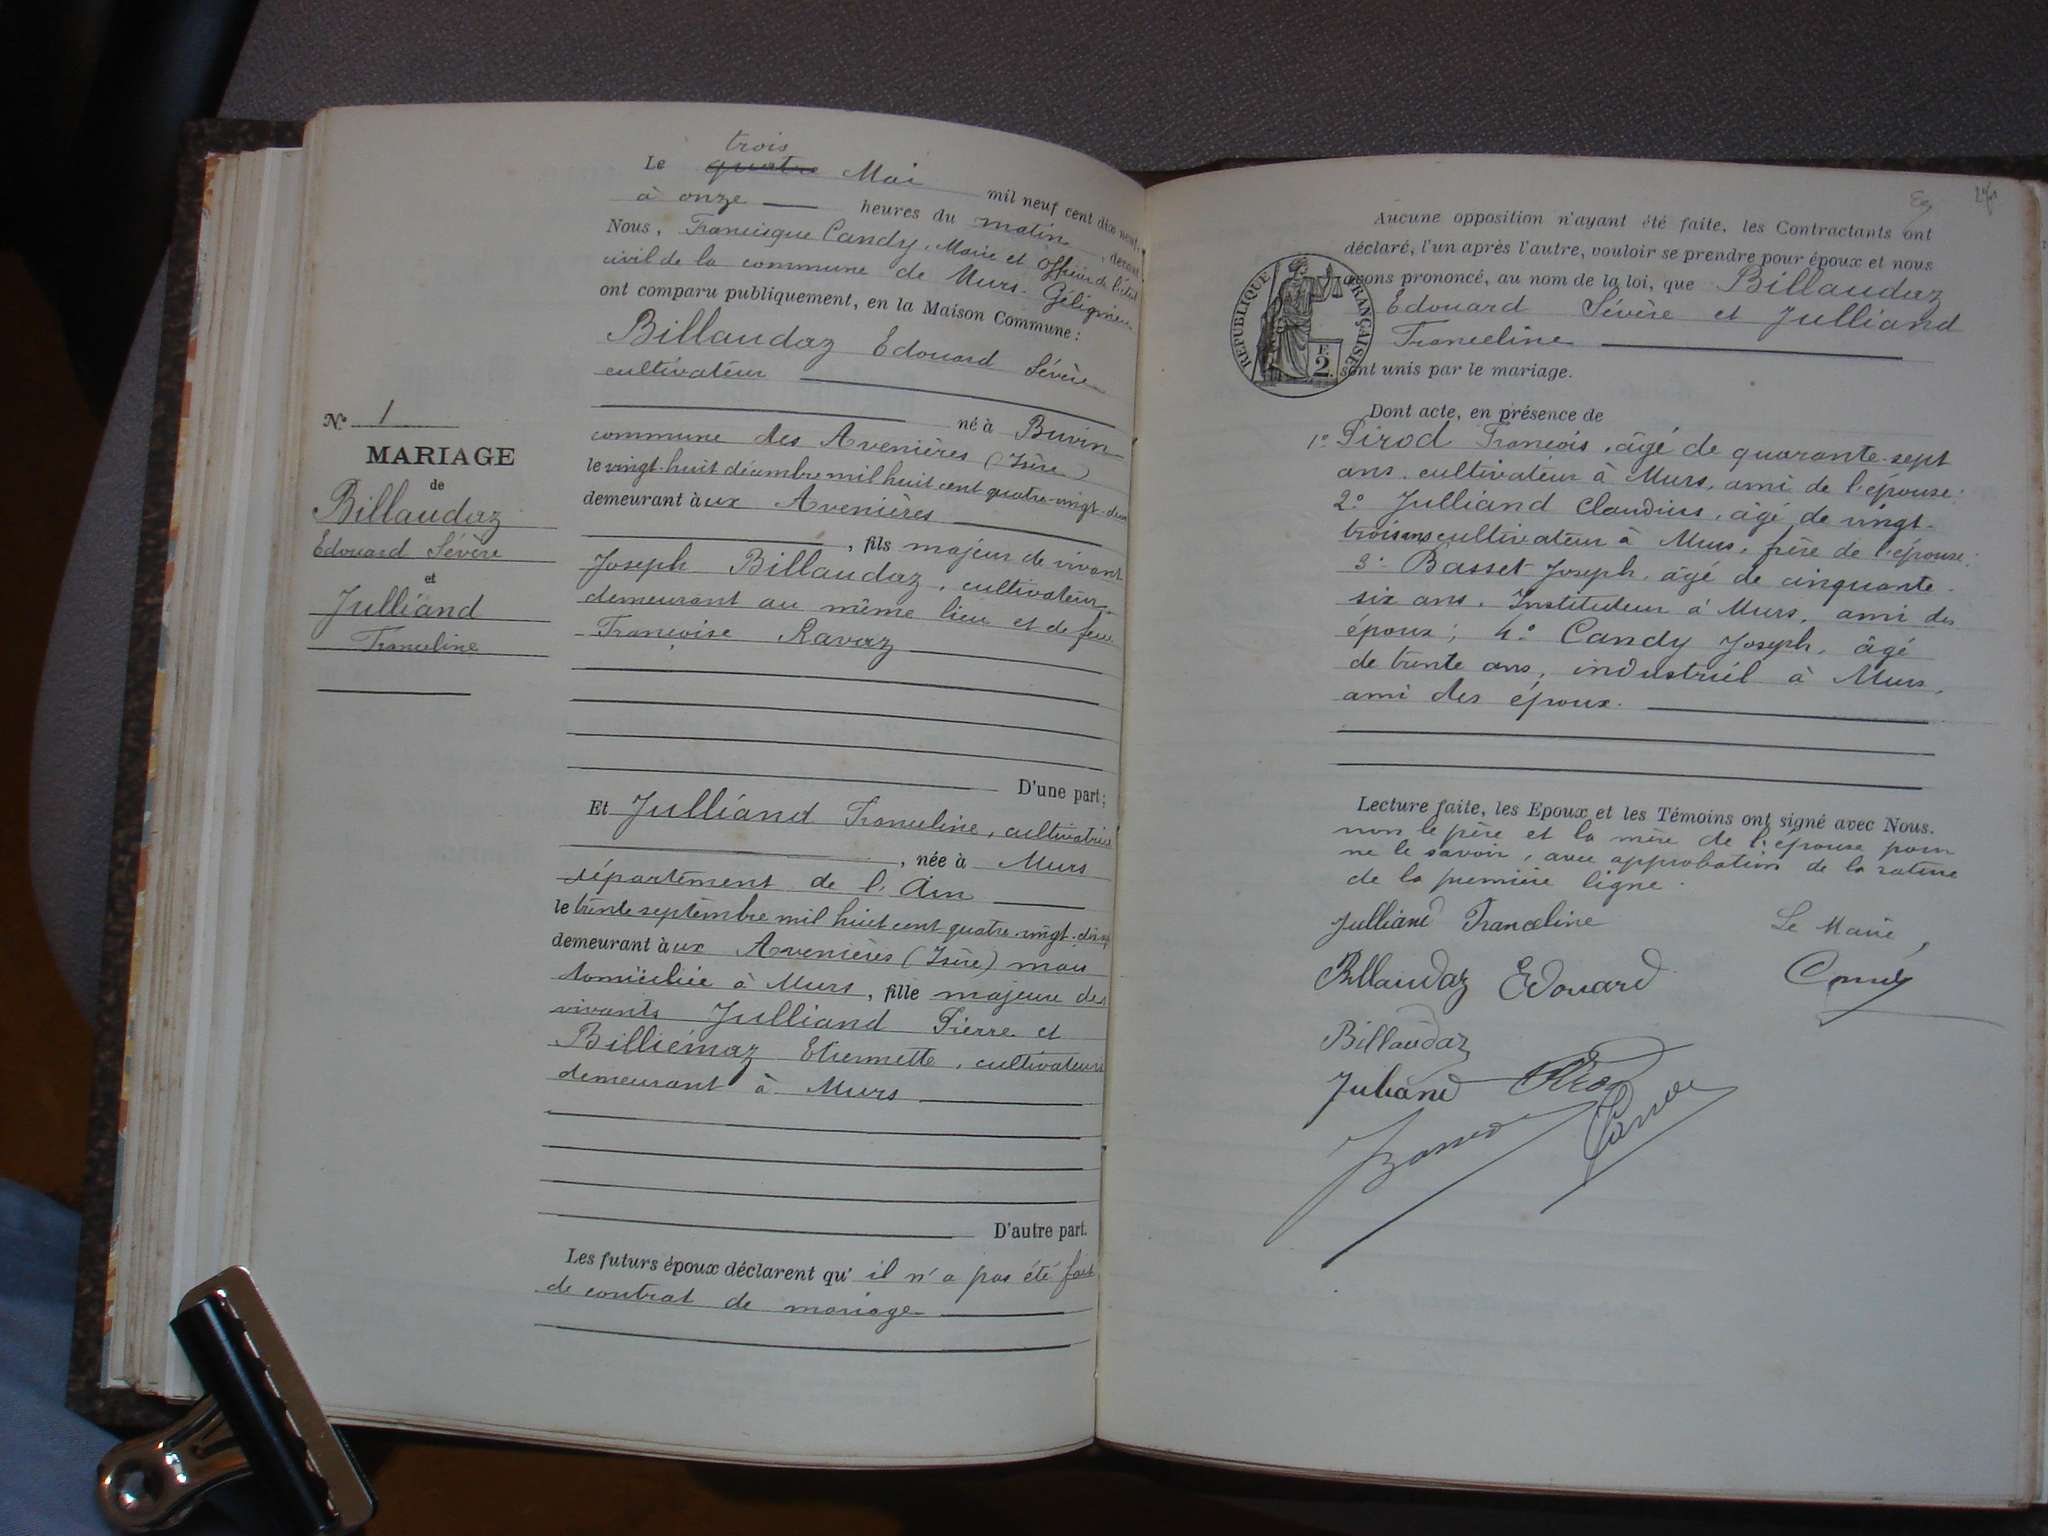 trois
Le quatre Mai mil neuf cent dix neuf,
à onze heures du matin, devant
Nous, Francisque Candy, Maire et Officier de l'état
civil de la commune de Murs-Géligneux
ont comparu publiquement, en la Maison Commune :
Billaudaz Edouard Sévère
cultivateur
né à Buvin
commune des Avenières (Isère)
le vingt-huit décembre mil huit cent quatre-vingt-deux
demeurant àux Avenières
, fils majeur de vivant
Joseph Billaudaz, cultivateur,
demeurant au même lieu et de feue
Françoise Ravaz
D'une part ;
Et Julliand Franceline, cultivatrice
, née à Murs
département de l'Ain
le trente septembre mil huit cent quatre-vingt-
demeurant àux Avenières (Isère) mais
domiciliée à Murs, fille majeure des
vivants Julliand Pierre et
Billiémaz Etiennette, cultivateurs
demeurant à Murs
D'autre part.
Les futurs époux déclarent qu' il n'a pas été fait
de contrat de mariage
N° 1
MARIAGE
de
Billaudaz
Edouard Sévère
et
Julliand
Franceline
Aucune opposition n'ayant été faite, les Contractants ont
déclaré, l'un après l'autre, vouloir se prendre pour époux et nous
avons prononcé, au nom de la loi, que Billaudaz
Edouard Sévère et Julliand
Franceline
sont unis par le mariage.
RÉPUBLIQUE FRANÇAISE
F.
2.
Dont acte, en présence de
1° Pirod François, âgé de quarante-sept
ans, cultivateur à Murs, ami de l'épouse ;
2° Julliand Claudius, âgé de vingt-
trois ans cultivateur à Murs, frère de l'épouse ;
3° Basset Joseph, âgé de cinquante-
six ans, Instituteur à Murs, ami des
époux ; 4° Candy Joseph, âgé
de trente ans, industriel à Murs,
ami des époux.
Lecture faite, les Epoux et les Témoins ont signé avec Nous.
non le père et la mère de l'épouse pour
ne le savoir, avec approbation de la rature
de la première ligne.
Julliand Franceline
Le Maire,
Billaudaz Edouard
Candy
Billaudaz
Juliand Pirod
Basset Candy